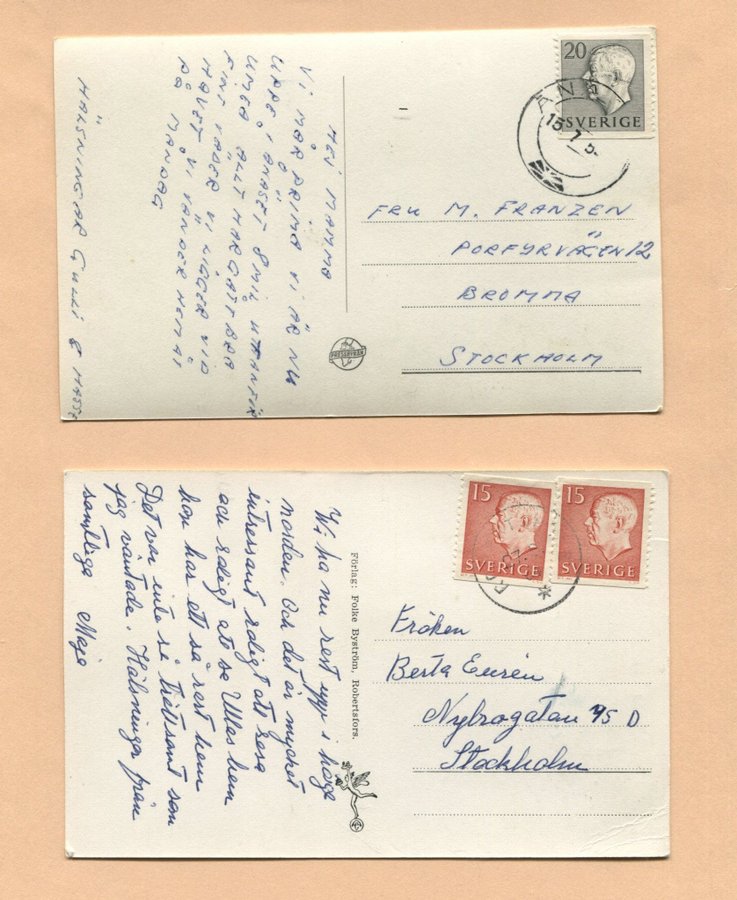 20
SVERIGE
HEJ MAMMA
VI MÅR PRIMA VI ÄR NU
UPPE I ÅNÄSET 8 MIL UTANFÖR
UMEÅ ALLT HAR GÅTT BRA
FINT VÄDER VI LIGGER VID
HAVET VI VÄNDER HEMÅT
PÅ MÅNDAG
HÄLSNINGAR GULLI & HASSE
FRU M. FRANZEN
PORFYRVÄGEN 12
BROMMA
STOCKHOLM
PRESSBYRÅN
15
SVERIGE
15
SVERIGE
Vi ha nu rest upp i höga
norden. Och det är mycket
intressant roligt att resa
och roligt att se Ullas hem
hon har ett så rart hem
Det var inte så tröttsamt som
jag väntade. Hälsningar från
samtliga Maja
Förlag: Folke Byström, Robertsfors.
Fröken
Berta Eurén
Nybrogatan 75 D
Stockholm